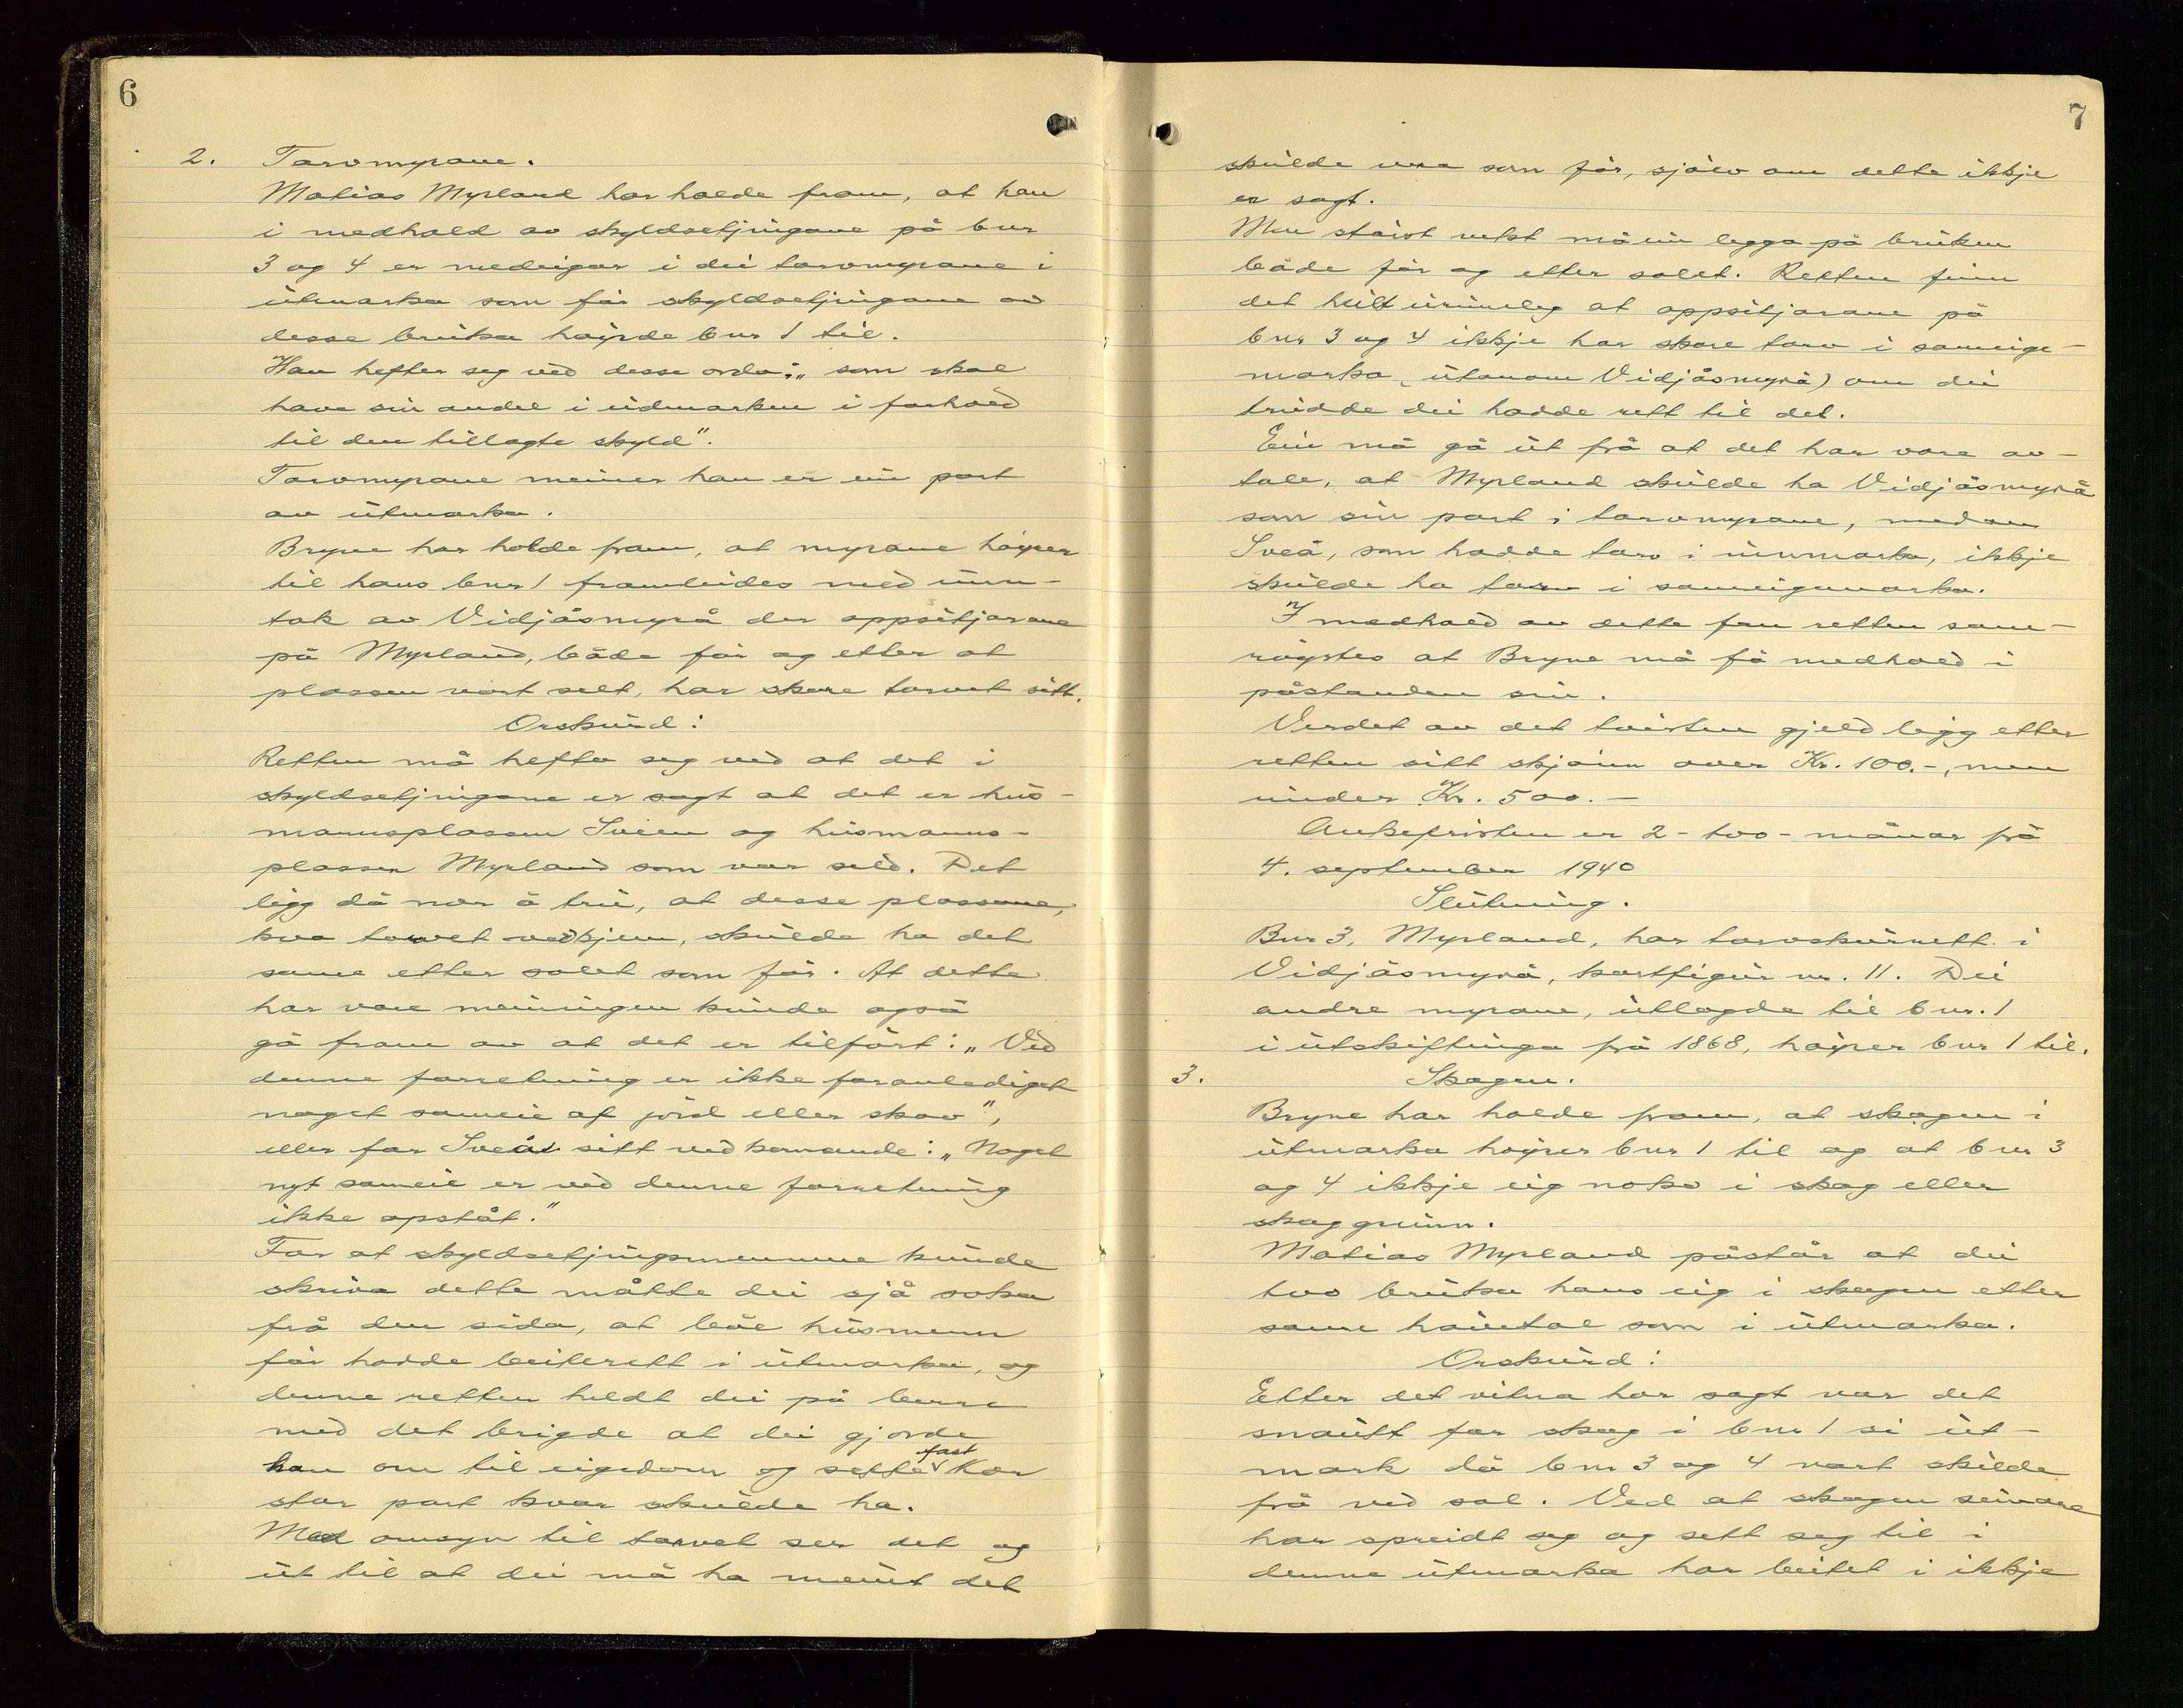 6
2. Torvmyrane.
Matias Myrland har halde fram, at han
i medhald av skyldsetjingane på bnr
3 og 4 er medeigar i dei torvmyrane i
utmarka som før skyldsetjingane av
desse bruka høyrde bnr 1 til.
Han hefter seg ved desse orda: „som skal
have sin andel i udmarken i forhold
til den tillagte skyld".
Torvmyrane meiner han er ein part
av utmarka.
Bryne har halde fram, at myrane høyrer
til hans bnr 1 framleides med unn-
tak av Vidjåsmyrå der oppsitjarane
på Myrland, både før og etter at
plassen vart selt, har skore torvet sitt.
Orskurd:
Retten må hefta seg ved at det i
skyldsetjingane er sagt at det er hus-
mannsplassen Sveen og husmanns-
plassen Myrland som var seld. Det
ligg då nær å tru, at desse plassane,
kva torvet vedkjem, skulde ha det
same etter salet som før. At dette
har vore meiningen kunde også
gå fram av at det er tilført: „Ved
denne forretning er ikke foranlediget
noget sameie af jord eller skov",
eller for Sveås sitt vedkomande: „Noget
nyt sameie er ved denne forretning
ikke opståt."
For at skyldsetjingsmennene kunde
skriva dette måtte dei sjå saka
frå den sida, at båe husmenn
før hadde beiterett i utmarka, og
denne retten heldt dei på berre
med det brigde at dei gjorde
han om til eigedom og sette fast kor
stor part kvar skulde ha.
Med omsyn til torvet ser det og
ut til at dei må ha meint det
7
skulde vera som før, sjølv om dette ikkje
er sagt.
Men størst vekt må ein legga på bruken
både før og etter salet. Retten finn
det heilt urimeleg at oppsitjarane på
bnr 3 og 4 ikkje har skore torv i sameige-
marka (utanom Vidjåsmyrå) om dei
trudde dei hadde rett til det.
Ein må gå ut frå at det har vore av-
tale, at Myrland skulde ha Vidjåsmyrå
som sin part i torvmyrane, medan
Sveå, som hadde torv i innmarka, ikkje
skulde ha torv i sameigemarka.
I medhald av dette fan retten sam-
røystes at Bryne må få medhald i
påstanden sin.
Verdet av det tvisten gjeld ligg etter
retten sitt skjønn over Kr. 100.-, men
under Kr. 500.-
Ankefristen er 2-two-månar frå
4. september 1940
Slutning.
Bnr 3, Myrland, har torvskurrett i
Vidjåsmyrå, kartfigur nr. 11. Dei
andre myrane, utlagde til bnr. 1
i utskiftinga frå 1868, høyrer bnr 1 til.
3. Skogen.
Bryne har halde fram, at skogen i
utmarka høyrer bnr 1 til og at bnr 3
og 4 ikkje eig noko i skog eller
skoggrunn.
Matias Myrland påstår at dei
two bruka hans eig i skogen etter
same høvetal som i utmarka.
Orskurd:
Etter det vitna har sagt var det
snøutt for skog i bnr 1 si ut-
mark då bnr 3 og 4 vart skilde
frå ved sal. Ved at skogen seinare
har spreidt seg og sett seg til i
denne utmarka har beitet i ikkje